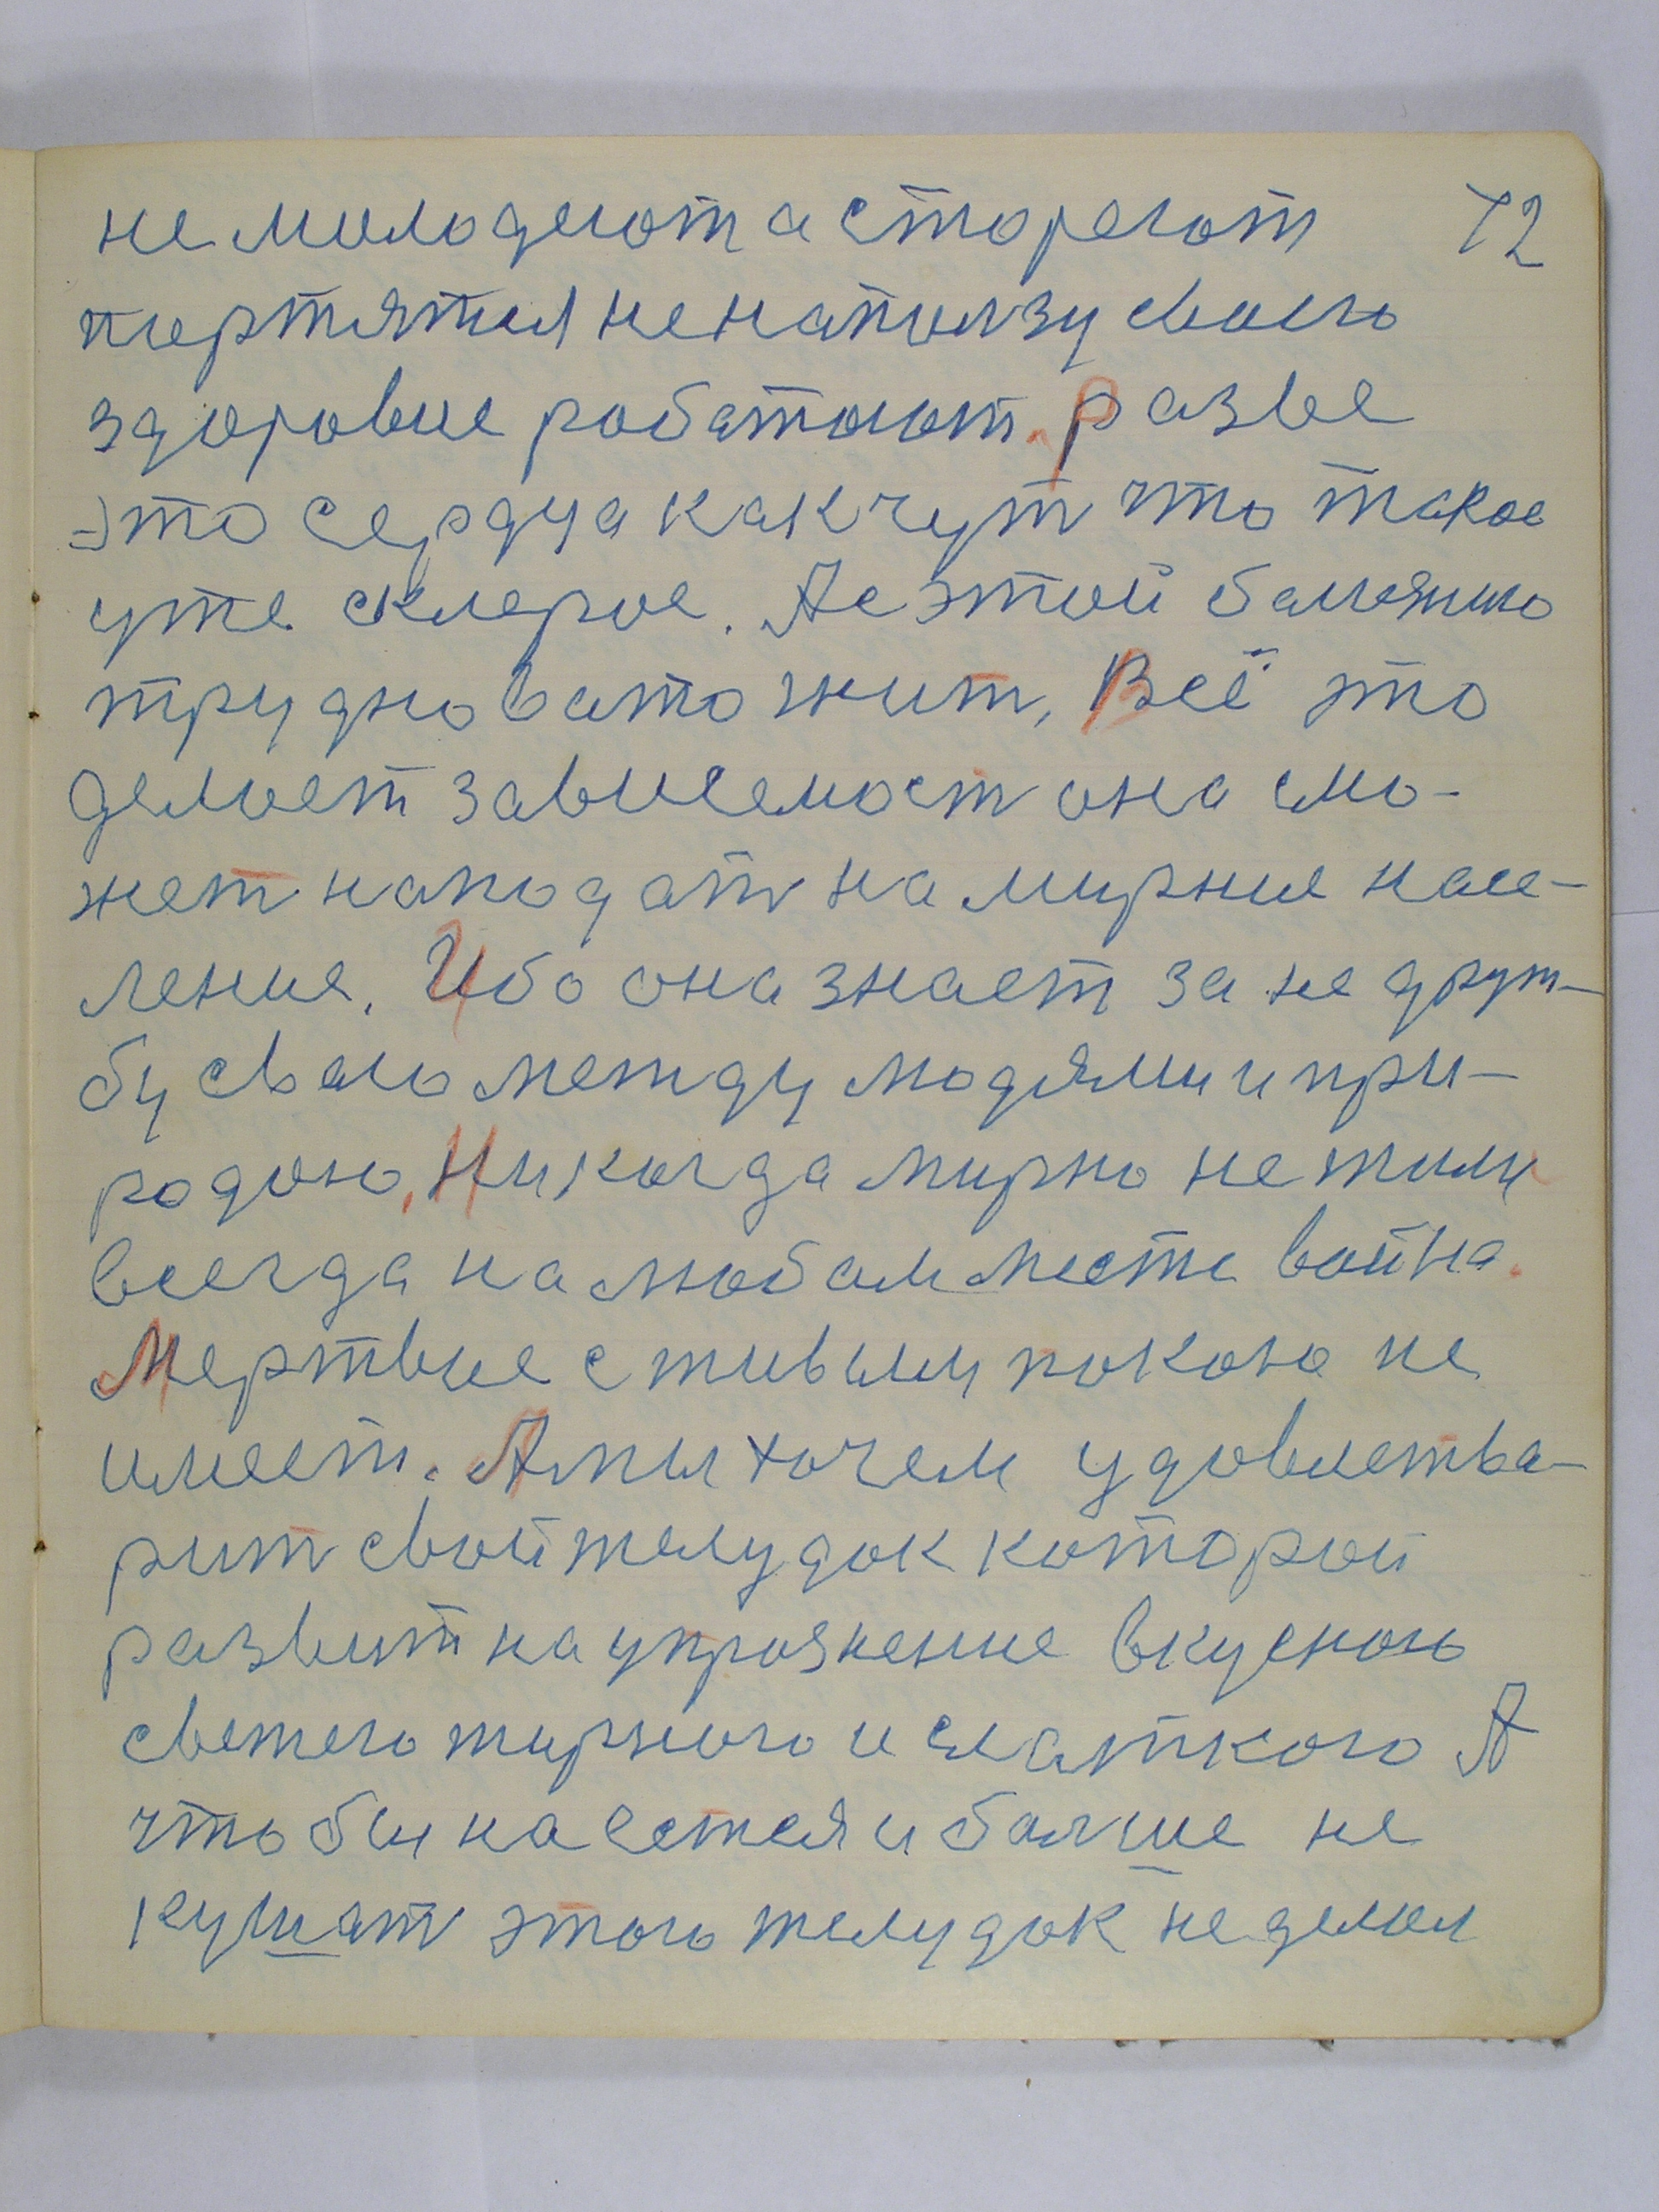 не молодеют а стореют 72
портятся не на ползу своего
здоровие работают. разве
это сердца как чут что такое
уже склероз. А с этой балезнию
трудновато жит, Всё это
делает зависемост она смо-
жет нападат на мирние насе-
ление. Ибо она знает за не друж-
бу сваю между людями и при-
родою, Никогда мирно не жили
всегда на любом месте война.
Мертвие с живыми покою не
имеет. А мы хочем удовлетва-
рит свой желудок которой
развит на упражнение вкусного
свежего жирного и слаткого А
что бы наестся и болше не
кушат этого желудок не делал